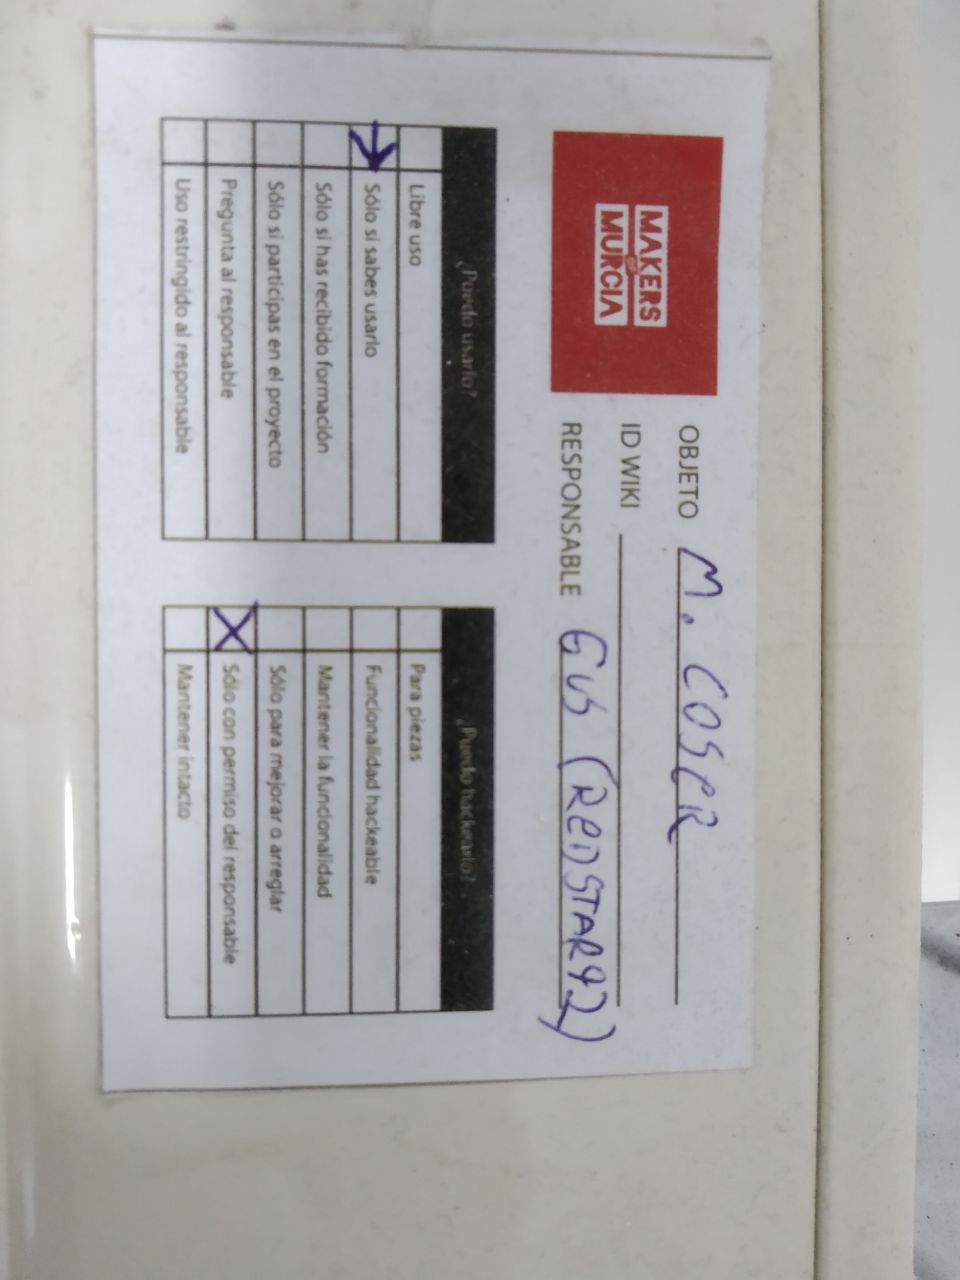 MAKERS
OF
MURCIA
OBJETO M. COSER
ID WIKI
RESPONSABLE GUS (REDSTAR42)
¿Puedo usarlo?
Libre uso
Sólo si sabes usarlo
Sólo si has recibido formación
Sólo si participas en el proyecto
Pregunta al responsable
Uso restringido al responsable
¿Puedo hackearlo?
Para piezas
Funcionalidad hackeable
Mantener la funcionalidad
Sólo para mejorar o arreglar
X Sólo con permiso del responsable
Mantener intacto